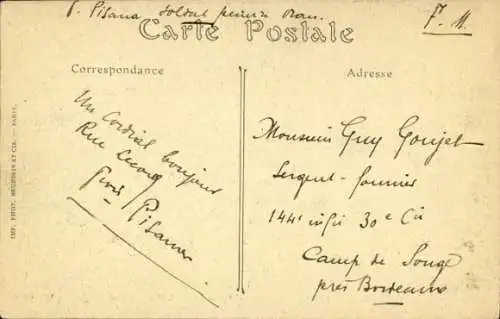 P. Pisana soldat
F. M.
Carte Postale
Correspondance
Adresse
Un cordial bonjour
Rue
Pisana
Monsieur Guy Goujet
Sergent-fourrier
144e infie 30e Cie
Camp de Souge
près Bordeaux
IMP. PHOT. NEURDEIN ET CIE. — PARIS.